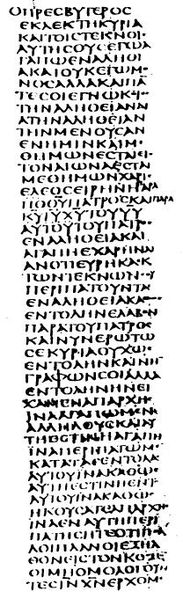 ΟΠΡΕϹΒΥΤΕΡΟϹ
ΕΚΛΕΚΤΗΚΥΡΙΑ
ΚΑΙΤΟΙϹΤΕΚΝΟΙ
ΑΥΤΗϹΟΥϹΕΓΩΑ
ΓΑΠΩΕΝΑΛΗΘΙ
ΑΚΑΙΟΥΚΕΓΩΜ
ΝΟϹΑΛΛΑΚΑΙΠΑ
ΤΕϹΟΙΕΓΝΩΚΟ
ΤΗΝΑΛΗΘΕΙΑΝΔΙ
ΑΤΗΝΑΛΗΘΕΙΑΝ
ΤΗΝΜΕΝΟΥϹΑΝ
ΕΝΗΜΙΝΚΑΙΜ
ΘΗΜΩΝΕϹΤΑΙΕΙ
ΤΟΝΑΙΩΝΑΕϹΤΑΙ
ΜΕΘΗΜΩΝΧΑΡΙ
ΕΛΕΟϹΕΙΡΗΝΗΠΑΡΑ
ΘΥΠΑΤΡΟϹΚΑΙΠΑΡΑ
ΚΥΙΥΧΥΤΟΥΥΥ
ΑΥΤΟΥΤΟΥΠΑΤΡ
ΕΝΑΛΗΘΕΙΑΚΑΙ
ΑΓΑΠΗΕΧΑΡΗΝΛΙ
ΑΝΟΤΙΕΥΡΗΚΑΕΚ
ΤΩΝΤΕΚΝΩΝϹΟΥ
ΠΕΡΙΠΑΤΟΥΝΤΑ
ΕΝΑΛΗΘΕΙΑΚΑ
ΕΝΤΟΛΗΝΕΛΑΒΟΝ
ΠΑΡΑΤΟΥΠΑΤΡΟϹ
ΚΑΙΝΥΝΕΡΩΤΩ
ϹΕΚΥΡΙΑΟΥΧΩϹ
ΕΝΤΟΛΗΝΚΑΙΝΗ
ΓΡΑΦΩΝϹΟΙΑΛΛΑ
ΕΝΤΟΛΗΝΗΝΕΙ
ΧΑΜΕΝΑΠΑΡΧΗϹ
ΙΝΑΑΓΑΠΩΜΕΝΑ
ΛΛΗΛΟΥϹΚΑΙΑΥ
ΤΗΕϹΤΙΝΗΑΓΑΠΗ
ΙΝΑΠΕΡΙΠΑΤΩΜ
ΚΑΤΑΤΑϹΕΝΤΟΛΑϹ
ΑΥΤΟΥΙΝΑΚΑΘΩϹ
ΑΥΤΗΕϹΤΙΝΗΕΝΤ
ΑΥΤΟΥΙΝΑΚΑΘΩϹ
ΗΚΟΥϹΑΤΕΑΠΑΡΧΗϹ
ΙΝΑΕΝΑΥΤΗΠΕΡΙ
ΠΑΤΗϹΗΤΕΟΤΙΠΟΛ
ΛΟΙΠΛΑΝΟΙΕΞΗΛ
ΘΟΝΕΙϹΤΟΝΚΟϹΜΟ
ΟΙΜΗΟΜΟΛΟΓΟΥ
ΤΕϹΙΝΧΝΕΡΧΟΜ